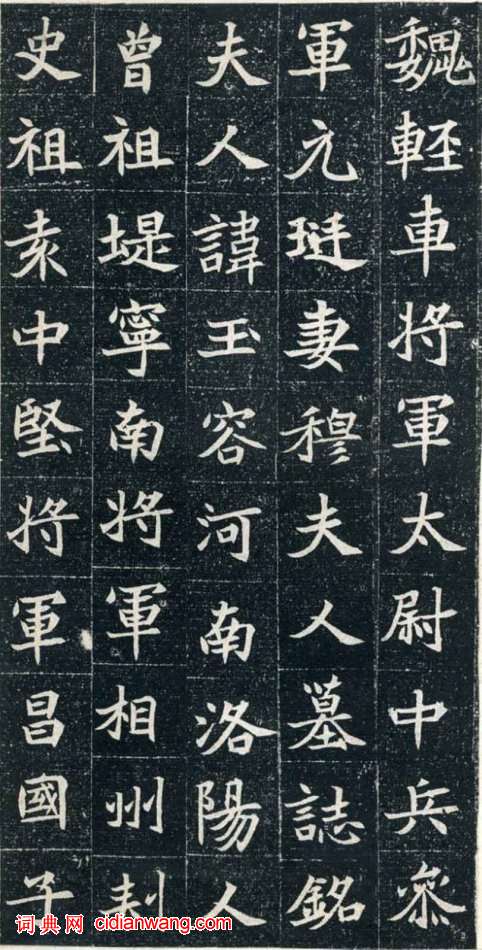 魏輕車將軍太尉中兵參
軍元珽妻穆夫人墓誌銘
夫人諱玉容河南洛陽人
曾祖堤寧南將軍相州刺
史祖袁中堅將軍昌國子
词典网 cidianwang.com